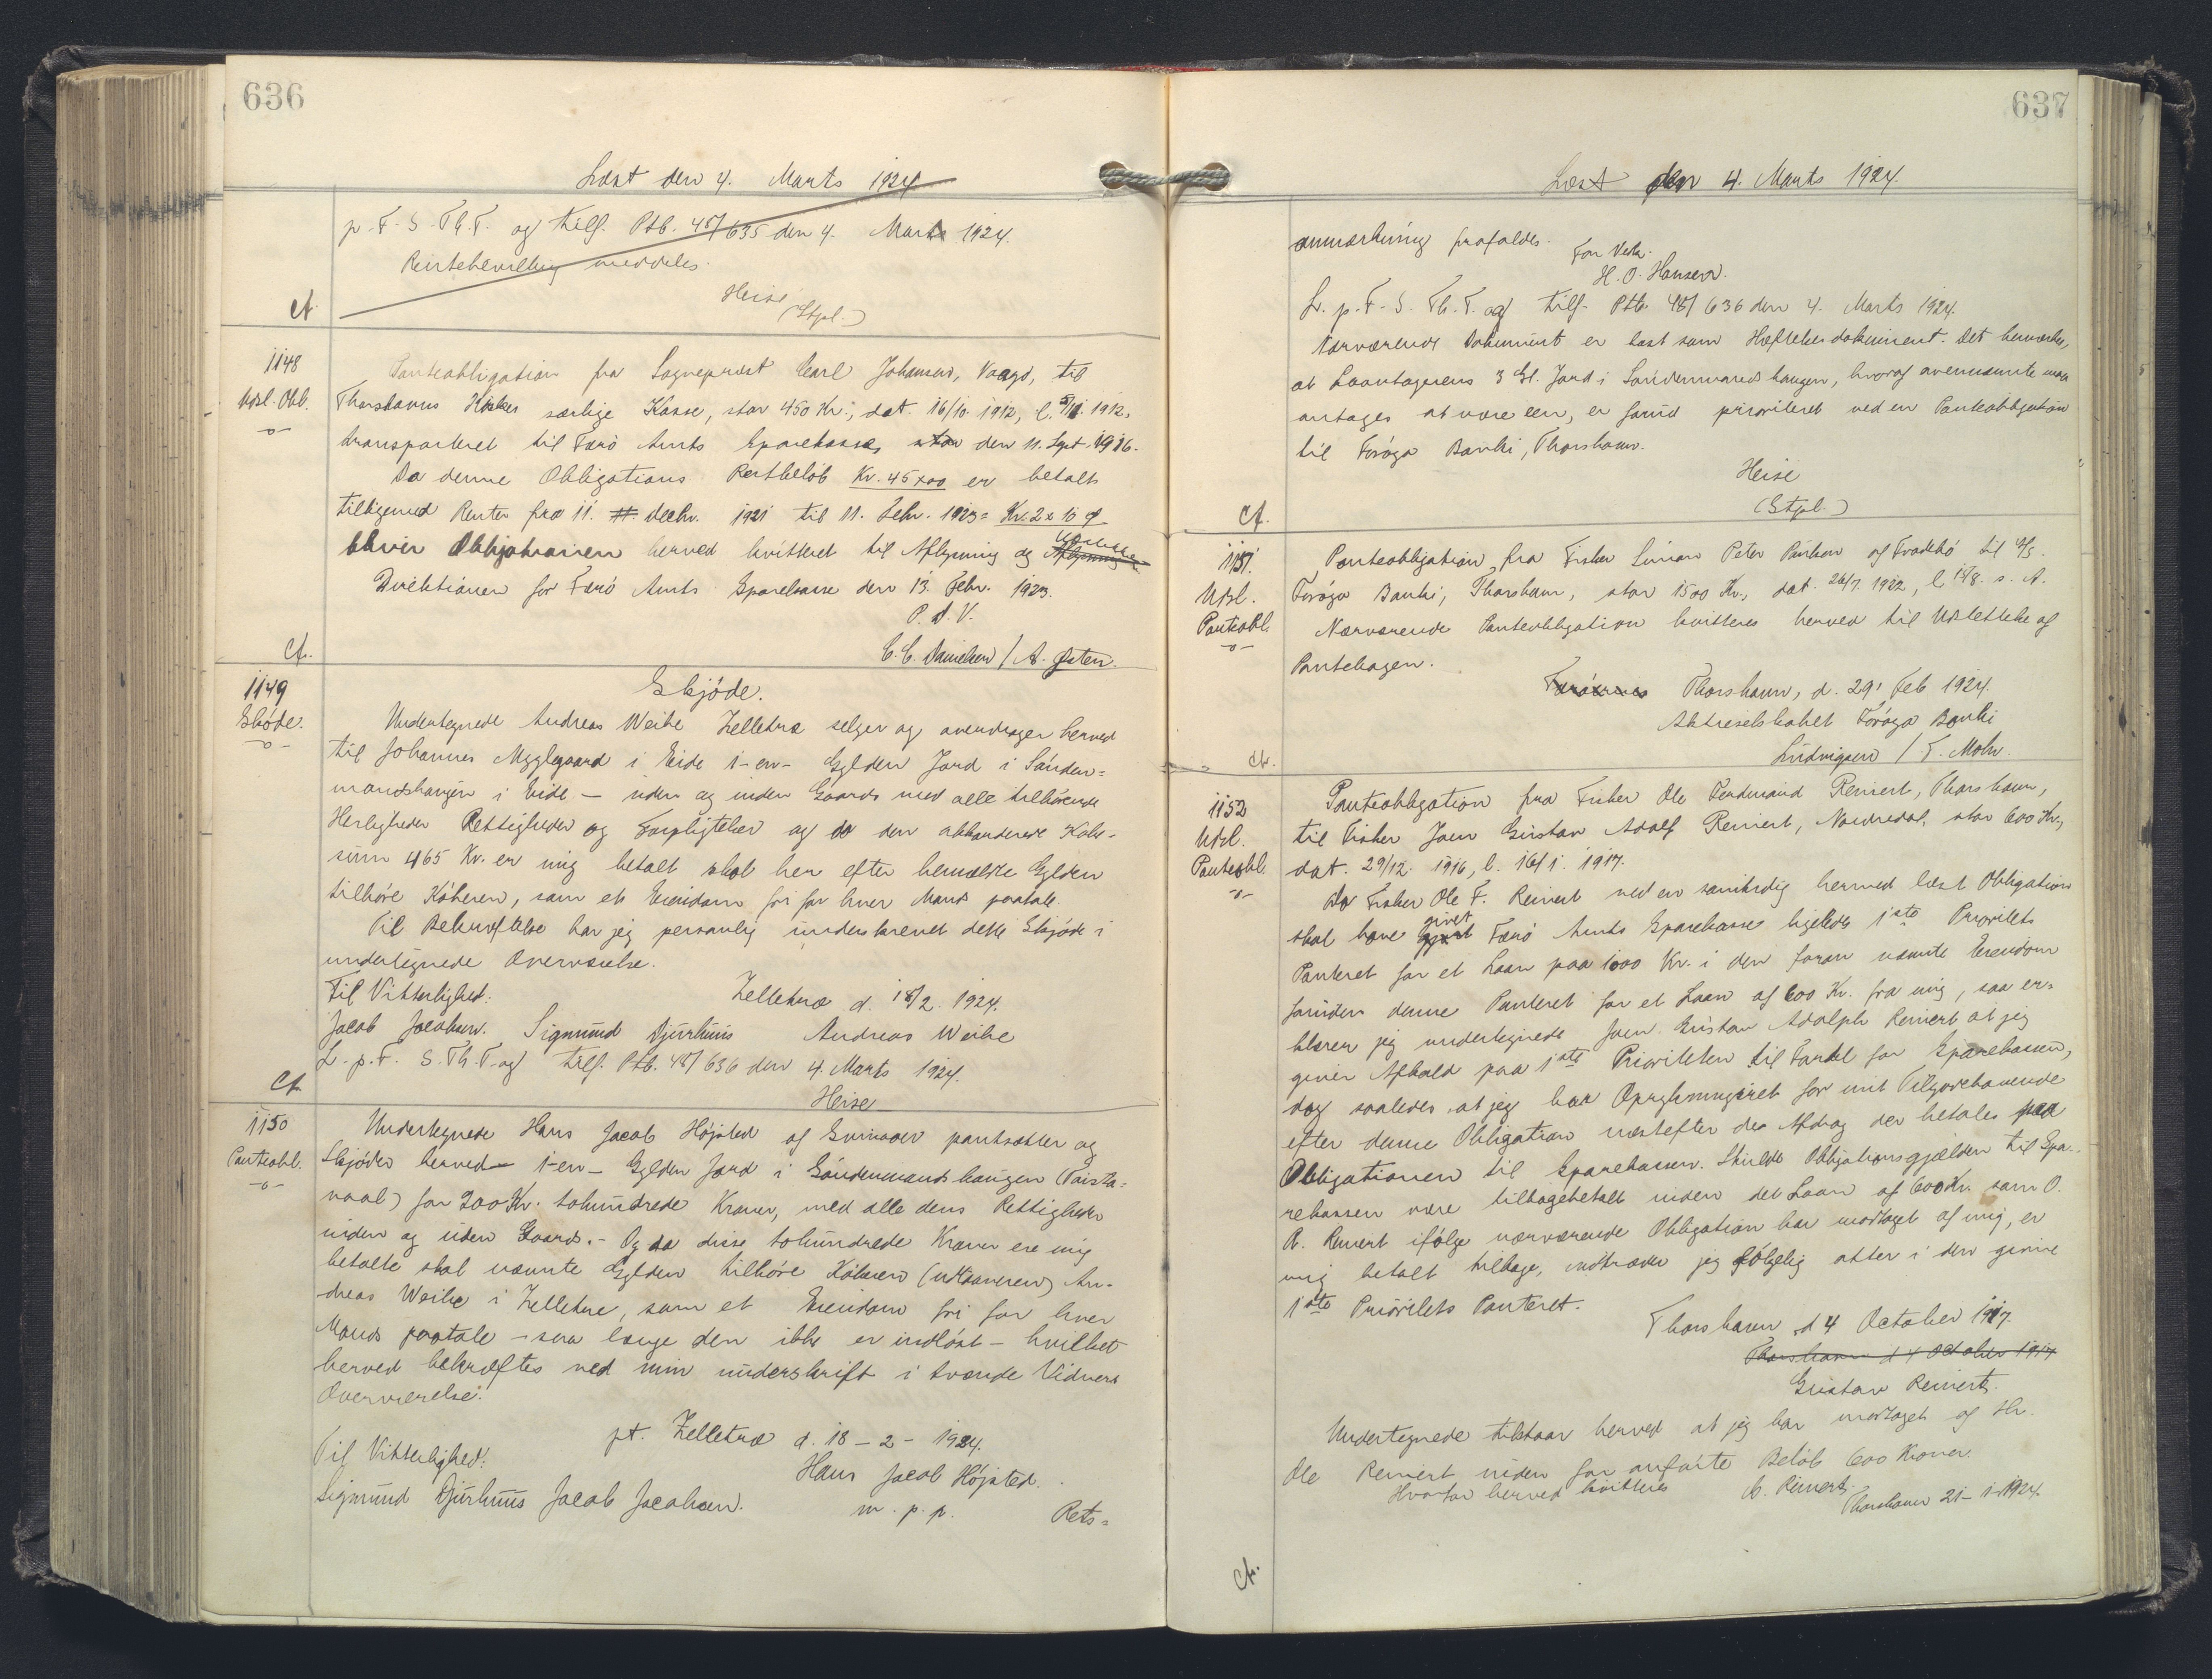 636
Læst den 4. Marts 1924
p. F. S. Th. F. og tilf. Ptb. 48/635 den 4. Marts 1924.
meddeles.
Heise
(Stpl.)
Cf.
1148
Udsl. Obl.
Panteobligation fra Sognepræst Carl Johansen, Vaagø, til
Thorshavns Kirkes særlige Kasse, stor 450 Kr., dat. 16/10 1912, l. 5/11. 1912,
transporteret til Færø Amts Sparekasse, den 11. Sept. 1916.
Da denne Obligations Restbeløb Kr. 45x00 er betalt
tilligemed Renter fra 11. Decbr. 1921 til 11. Febr. 1923 = Kr. 2x
bliver Obligationen herved kvitteret til Aflysning og
Direktionen for Færø Amts Sparekasse den 13. Febr. 1923.
P. D. V.
C. C. Danielsen / A.
Cf.
1149
Skøde.
Skjöde.
Undertegnede Andreas Weihe Zelletræ selger og avendrager herved
til Johannes Mygleggaard i Eide 1-en- Gylden Jord i Sånden-
mandshaugin i Eide - uden og inden Gaards med alle tilhørende
Herligheder Rettigheder og Forpligtelser og da den akkorderede Købe-
sum 465 Kr. er mig betalt skal her efter bemældte Gylden
tilhøre Köberen, som et Eiendom fri for hver Mands paatale.
Til Bekræftelse har jeg personlig underskrevet dette Skjöde i
undertegnede Overværelse.
Til Vitterlighed: Zelletræ d. 18/2. 1924.
Jacob Jacobsen. Sigmund Djurhuus Andreas Weihe
L. p. F. S. Th. F. og tilf. Ptb. 48/636 den 4. Marts 1924.
Heise
Cf.
1150
Panteobl.
Undertegnede Hans Jacob Højsted af pantsætter og
skjøder herved 1-en- Gylden Jord i Såndenmandshaugen
for 200 Kr. tohundrede Kroner, med alle dens Rettigheder
inden og uden Gaards. - Og da disse tohundrede Kroner ere mig
betalte skal nævnte Gylden tilhøre Köberen (udlaaneren) An-
dreas Weihe i Zelletræ, som et Eiendom fri for hver
Mands paatale - saa længe den ikke er indløst - hvilket
herved bekræftes ved min underskrift i tvende Vidners
Overværelse.
pt. Zelletræ d. 18 - 2 - 1924.
Til Vitterlighed: Hans Jacob Højsted.
Sigmund Djurhuus Jacob Jacobsen. m. p. p. Rets-
637
Læst den 4. Marts 1924.
anmærkning frafaldes.
For Vedr.
H. O. Hansen.
L. p. F. S. Th. F. og tilf. Ptb. 48/636 den 4. Marts 1924.
Nærværende Dokument er læst som Hæftelsesdokument. Det bemærkes,
at Laantagerens 3 Gl. Jord i Såndenmandshaugen, hvoraf ovennævnte maa
antages at være een, er forud prioriteret ved en Panteobligation
til Föroya Banki, Thorshavn.
Heise
(Stpl.)
Cf.
1151.
Udsl.
Panteobl.
Panteobligation fra Fisker Simon Peter Poulsen af Fradebö til A/S.
Föroya Banki, Thorshavn, stor 1500 Kr., dat. 26/7. 1922, l. 18/8. s. A.
Nærværende Panteobligation kvitteres herved til Udslettelse af
Pantebogen.
Thorshavn, d. 29. Feb 1924.
Aktieselskabet Föroya Banki
Ludvigsen / T. Mohr.
Cf.
1152
Udsl.
Panteobl.
Panteobligation fra Fisker Ole Ferdinand Reinert, Thorshavn,
til Fisker Joen Gustav Adolf Reinert, Nordredal, stor 600 Kr.,
dat. 29/12. 1916, l. 16/1. 1917.
Da Fisker Ole F. Reinert ved en samtidig hermed læst Obligation
skal have givet Færö Amts Sparekasse ligeledes 1ste Prioritets
Panteret for et Laan paa 1000 Kr. i den foran nævnte Eiendom
foruden denne Panteret for et Laan af 600 Kr. fra mig, saa er-
klærer jeg undertegnede Joen Gustav Adolph Reinert at jeg
giver Afkald paa 1ste Prioriteten til Fordel for Sparekassen,
dog saaledes at jeg har Oprykningsret for mit Tilgodehavende
efter denne Obligation næstefter de Afdrag der betales paa
Obligationen til Sparekassen. Skulde Obligationsgjælden til Spa-
rekassen være tilbagebetalt inden det Laan af 600 Kr. som O.
R. Reinert ifølge nærværende Obligation har modtaget af mig, er
mig betalt tilbage, indtræder jeg følgelig atter i den givne
1ste Prioritets Panteret.
Thorshavn d 4 October 1917.
Thorshavn d 4 October 1917
Gustav Reinert.
Undertegnede tilstaar herved at jeg har modtaget af Hr.
Ole Reinert inden for anførte Beløb 600 Kroner.
Hvorfor herved kvitteres G. Reinert.
Thorshavn 21-1-1924.
Cf.